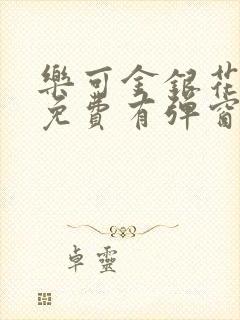 樂可金銀花
免費有彈窗
卓靈